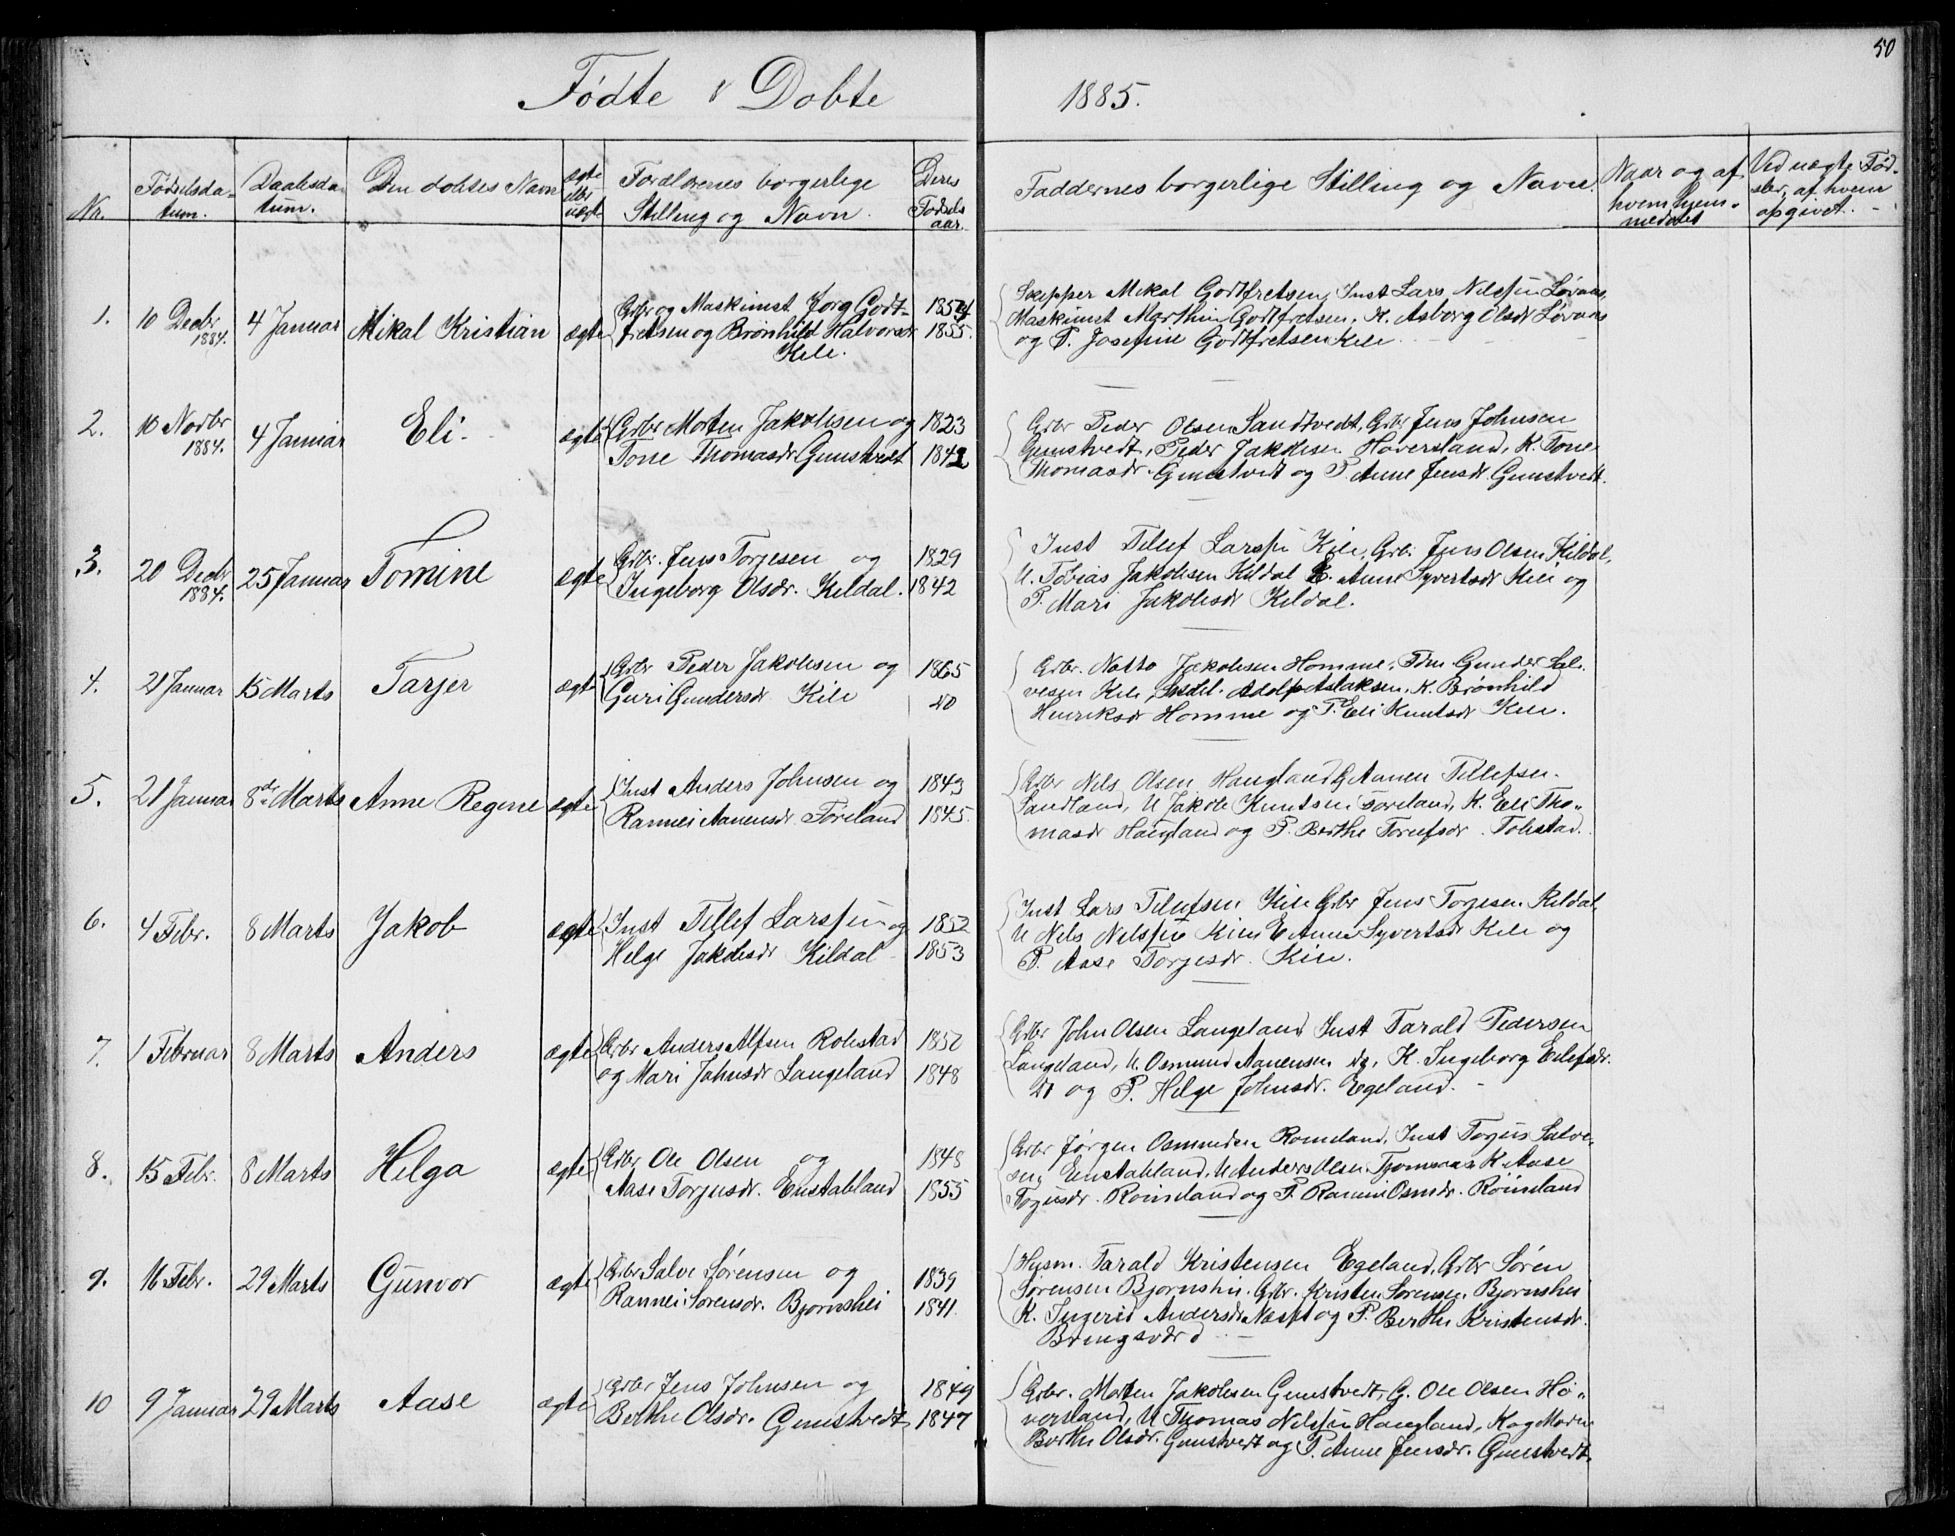 50
Fødte & Døbte 1885.
Nr. Fødselsda-tum. Daabsda-tum. Den døbtes Navn ægte eller uægte Forældrenes borgerlige Stilling og Navn. Deres Fødsels aar. Faddernes borgerlige Stilling og Navn. Naar og af hvem hjem-meddøbt Ved uægte Fød-sler, af hvem opgivet.
1. 10 Decbr 1884. 4 Januar Mikal Kristian ægte
Grbr og Maskinist Jørg Godt- 1854
fretsen og Brønhild Halvorsdr 1855.
Kile.
Skipper Mikal Godtfretsen, Inst Lars Nilssen Løvaas,
Maskinist Marthin Godtfretsen, K. Asborg Olsdr Løvaas
og P. Josefine Godtfretsen Kile
2. 10 Novbr 1884. 4 Januar Eli ægte
Grbr Morten Jakobsen og 1823
Tone Thomasdr Gumstvedt 1842
Grbr Peder Olsen Sandtvedt, Grbr Jens Johnsen
Gumstvedt, Peder Jakobsen Høversland, K. Tone
Thomasdr. Gumstvedt og P. Anne Jensdr Gumstvedt.
3. 20 Decbr 1884. 25 Januar Tomine ægte
Grbr. Jens Torjesen og 1829
Ingeborg Olsdr. Kildal. 1842
Inst Tellef Larssen Kile, Grbr. Jens Olsen Kildal,
U. Tobias Jakobsen Kildal E. Anne Syvertsdr Kile og
P. Mari Jakobsdr Kildal.
4. 21 Januar 15 Marts Tarjer ægte
Grbr Peder Jakobsen og 1865
Guri Gundersdr Kile do
Grbr. Natto Jakobsen Homme, Gunder Sal-
vesen Kile, Adolf Aslaksen, K. Brønhild
Henriksdr Homme og P. Eli Knutsdr Kile.
5. 21 Januar 8de Marts Anne Regine ægte
Inst Anders Johnsen og 1843
Rannei Aanensdr Foreland 1845.
Grbr Nils Olsen Haugland G Aanen Tellefsen
Sandland, U Jakob Knutsen Foreland, K. Eli Tho-
masdr Haugland og P. Berthe Torlefsdr. Tobstad.
6. 4 Febr. 8 Marts Jakob ægte
Inst Tellef Larssen og 1852
Helge Jakobsdr Kildal 1853
Inst Lars Tellefsen Kile Grbr Jens Torjesen Kildal,
U Nils Nilssen Kile E Anne Syvertsdr Kile og
P. Aase Torjesdr. Kile.
7. 1 Februar 8 Marts Anders ægte
Grbr Anders Alfsen Robstad 1852
og Mari Johnsdr Langeland 1848
Grbr John Olsen Langeland Inst Tarald Pedersen
Langeland, U. Osmund Aanensen do, K. Ingeborg Eilefsdr.
do og P. Helge Johnsdr. Egeland.
8. 15 Febr. 8 Marts Helga ægte
Grbr Ole Olsen og 1848
Aase Torjusdr. Enstabland 1855
Grbr Jørgen Osmundsen Romeland, Inst Togus Salve-
sen, Enstabland, U Anders Olsen Tjomsaas K Aase
Togusdr. Romeland og P. Rannei Osmdr. Rømeland
9. 16 Febr. 29 Marts Gunvor ægte
Grbr Salve Sørensen og 1839
Rannei Sørensdr. Bjørnshei 1841.
Husm. Tarald Kristensen Egeland, Grbr Søren
Sørensen Bjørnshei. Grbr. Kristen Sørensen. Bjørnshei
K. Ingerid Andersdr og P. Berthe Kristensdr.
Bringsværd
10 9 Januar 29 Marts Aase ægte
Grbr Jens Johnsen og 1849
Berthe Olsdr. Gumstvedt 1847
Grbr. Morten Jakobsen Gumstvedt, G. Ole Olsen Hø-
versland, U Thomas Nilssen Haugland, K og Moder
Berthe Olsdr. Gumstvedt og P. Anne Jensdr. Gumstvedt.